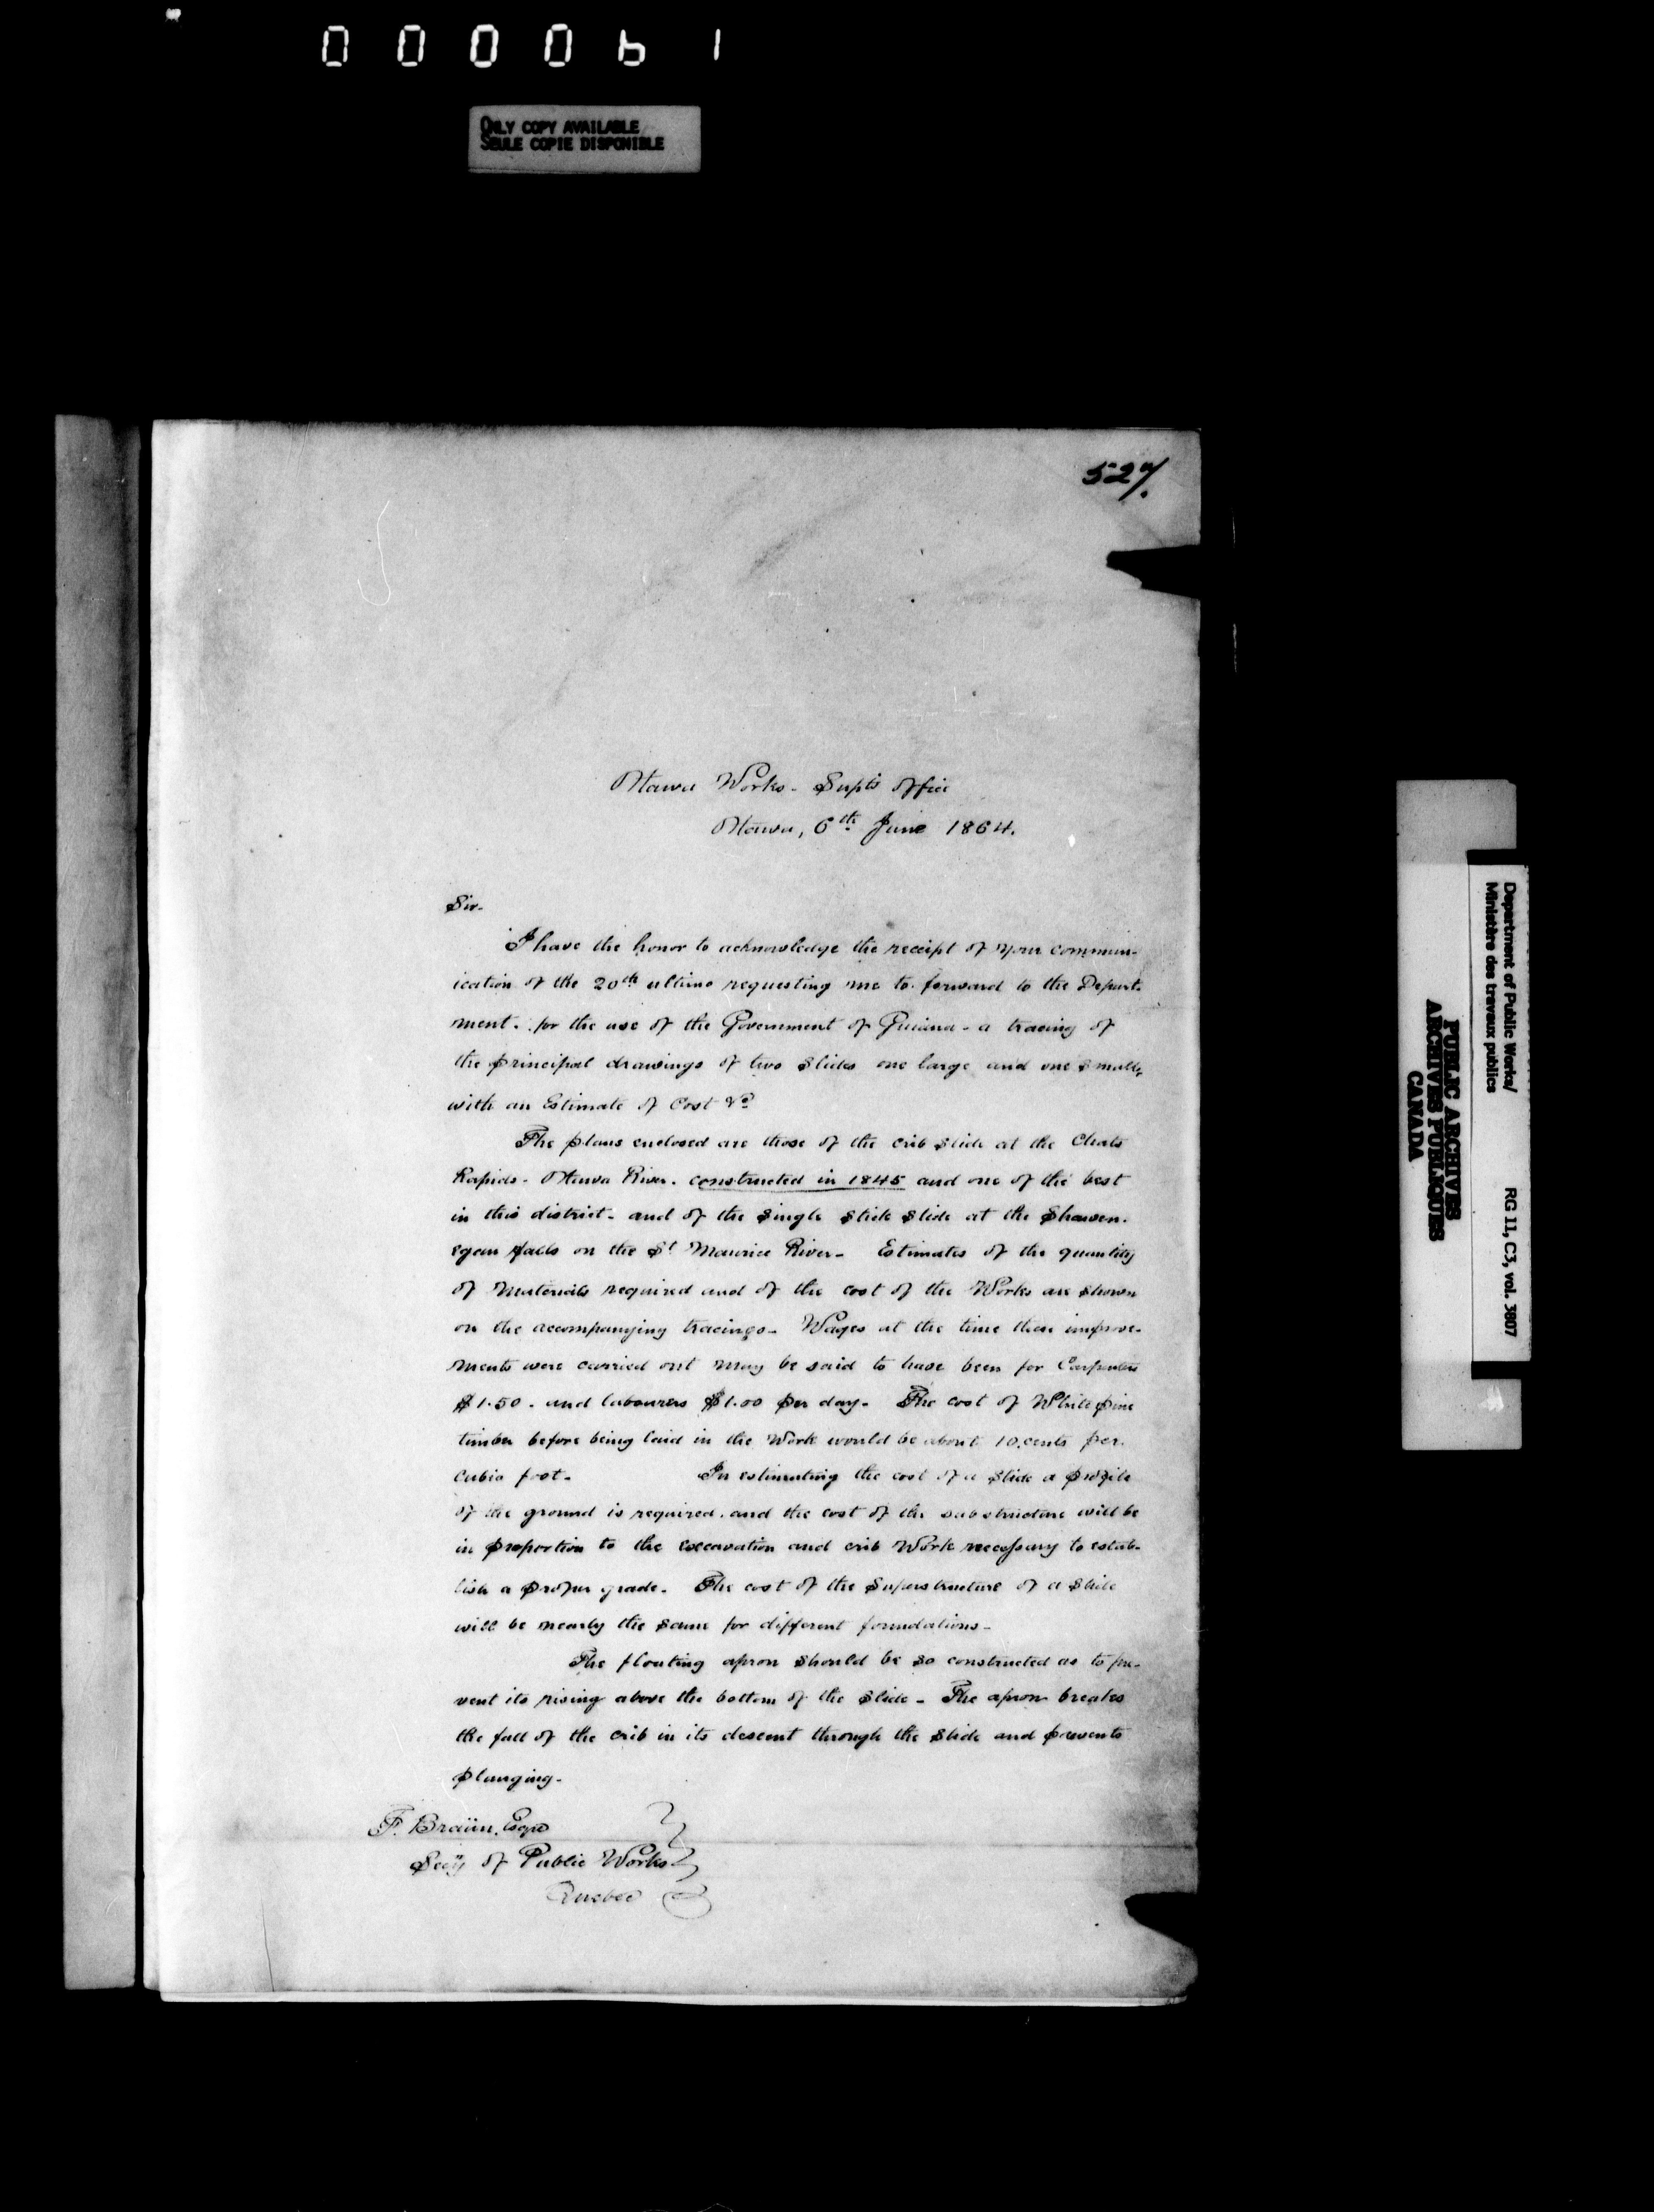 000061
ONLY COPY AVAILABLE
SEULE COPIE DISPONIBLE
527.
Ottawa Works - Supts Office
Ottawa, 6th June 1864.
Sir.
I have the honor to acknowledge the receipt of your commun-
ication of the 20th ultimo requesting me to forward to the Depart-
ment. for the use of the Government of Guiana - a tracing of
the principal drawings of two slides one large and one small,
with an Estimate of Cost &c
The plans enclosed are those of the crib slide at the Chats
Rapids - Ottawa River. constructed in 1845 and one of the best
in this district - and of the single stick slide at the Shawen-
egan falls on the St Maurice River - Estimates of the quantity
of materials required and of the cost of the Works are shown
on the accompanying tracings - Wages at the time these improve-
ments were carried out may be said to have been for Carpenters
$1.50. and labourers $1.00 per day - The cost of White pine
timber before being laid in the Work would be about 10.cents per.
cubic foot - In estimating the cost of a slide a profile
of the ground is required. and the cost of the substructure will be
in proportion to the excavation and crib Work necessary to estab-
lish a proper grade - The cost of the superstructure of a slide
will be nearly the same for different foundations -
The floating apron should be so constructed as to pre-
vent its rising above the bottom of the slide - The apron breaks
the fall of the crib in its descent through the slide and prevents
plunging -
F. Braün, Esqre
Secy of Public Works
Quebec
Department of Public Works/
Ministère des travaux publics
RG 11, C3, vol. 3807
PUBLIC ARCHIVES
ARCHIVES PUBLIQUES
CANADA